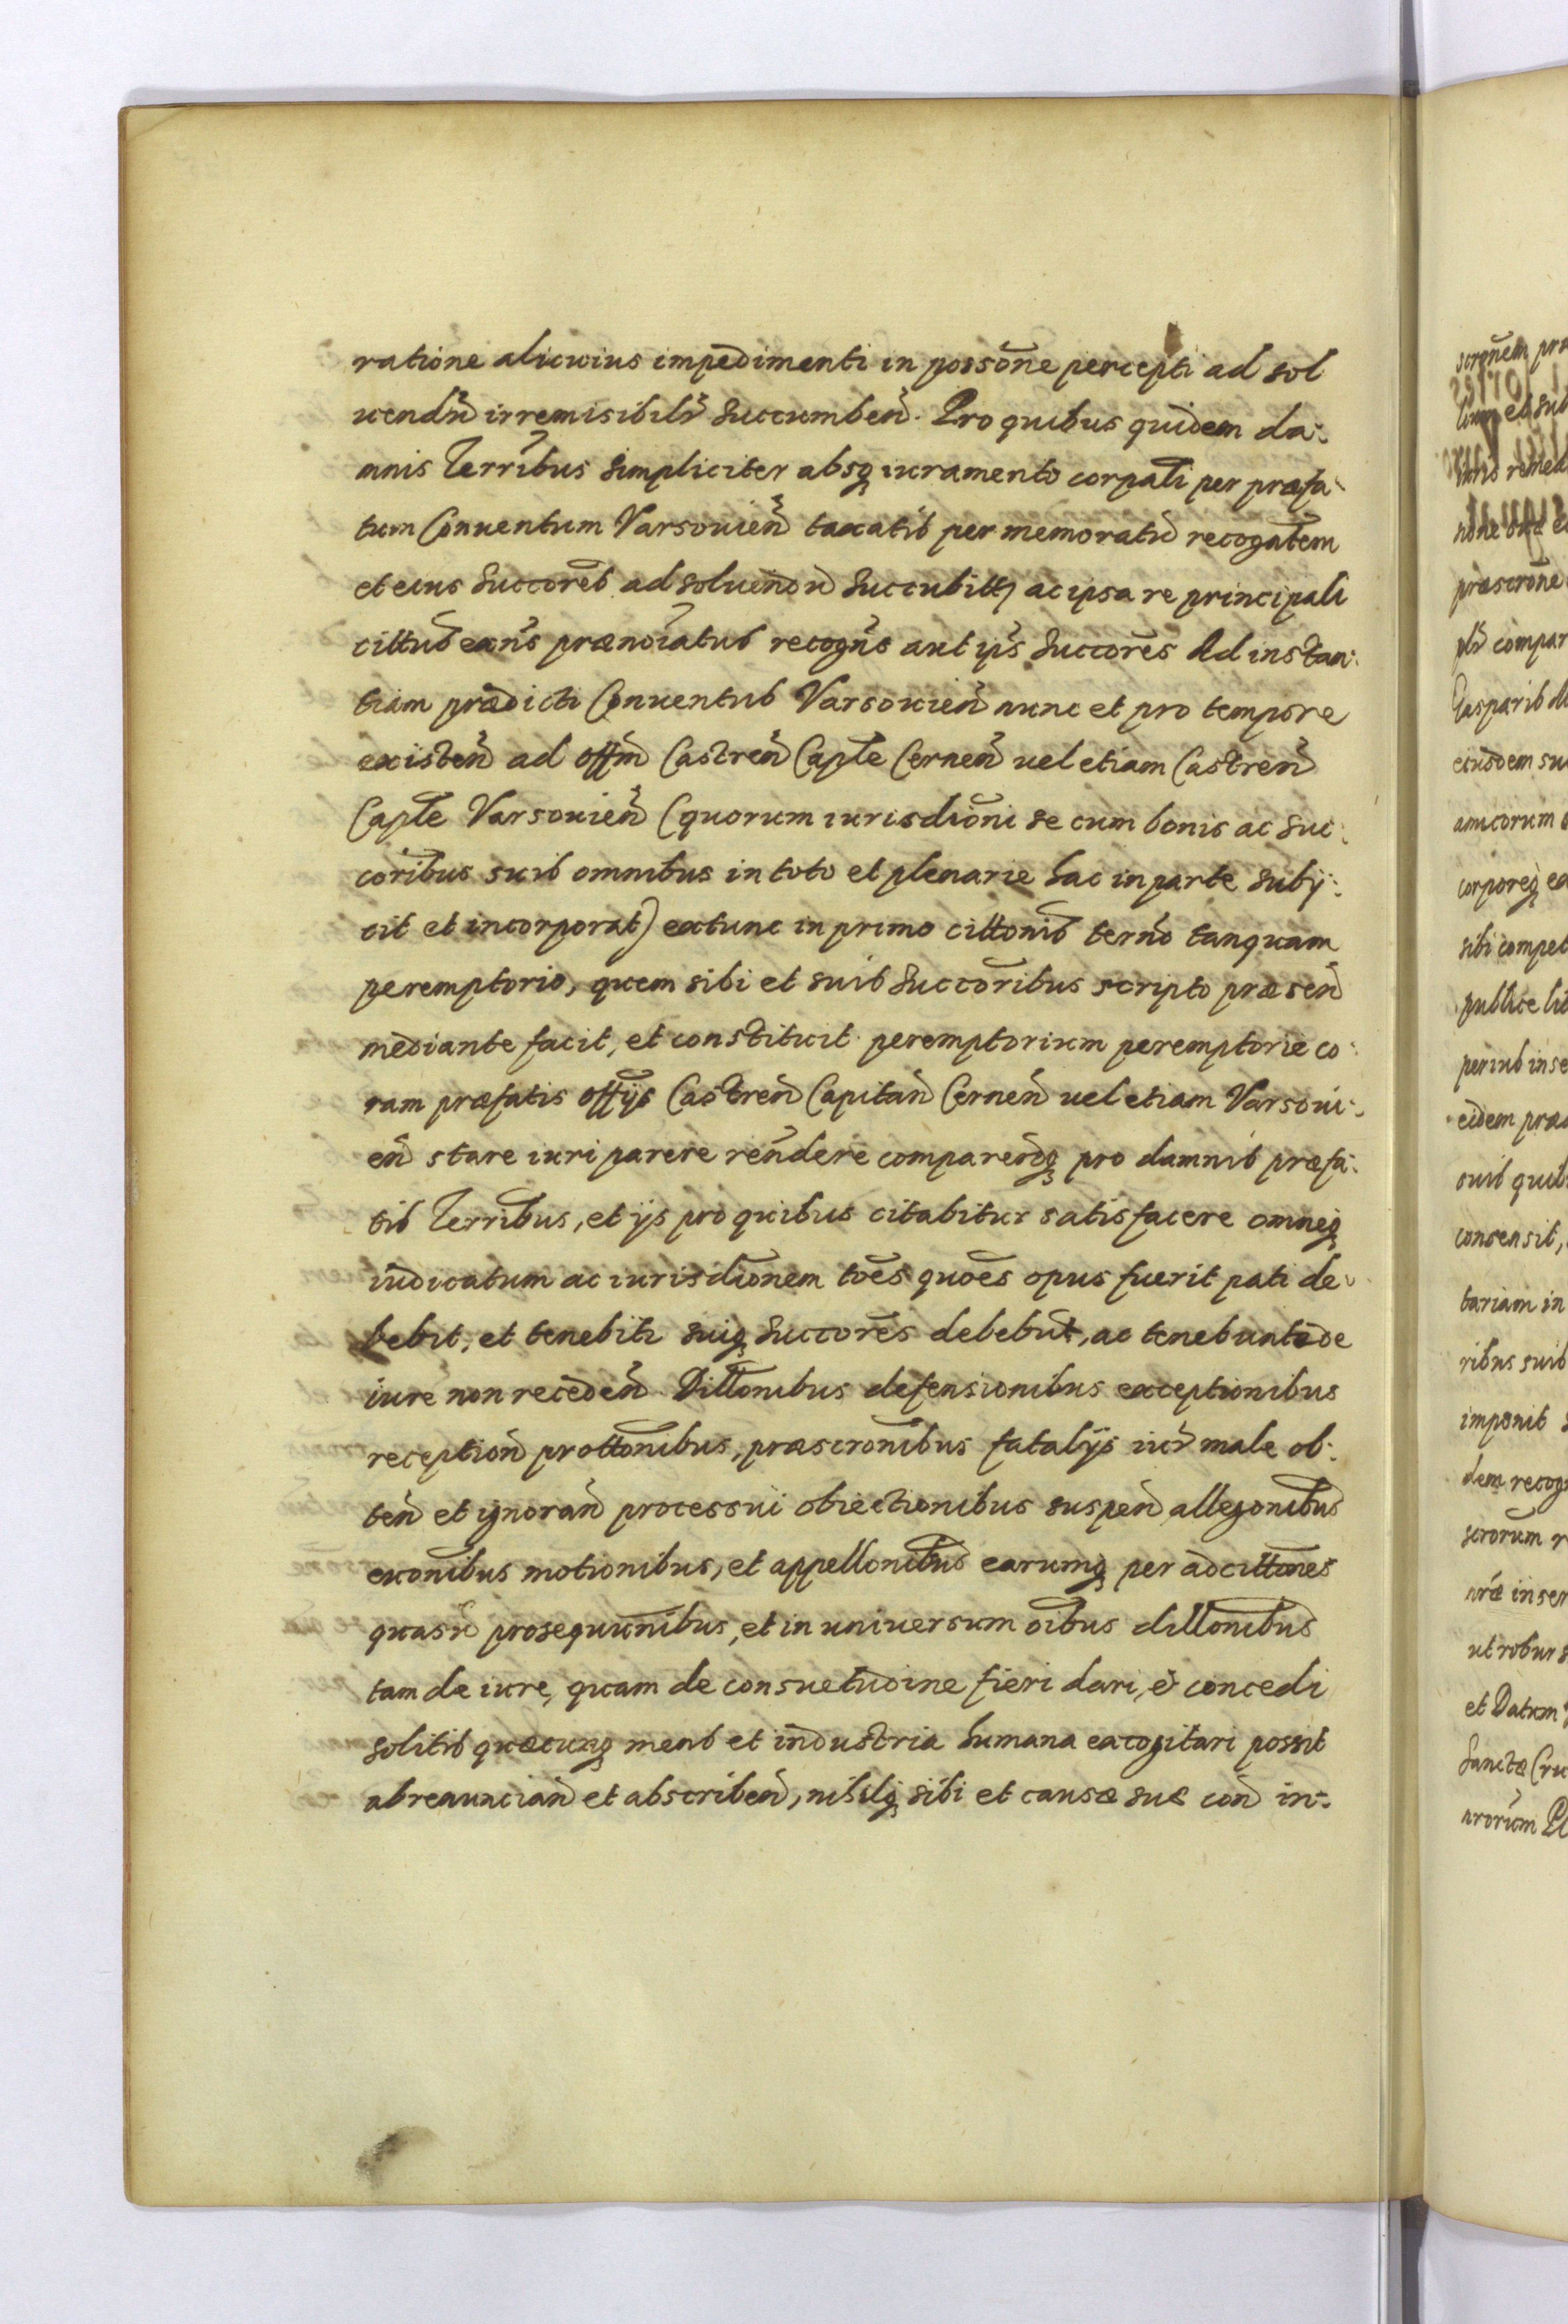 ratione alicuius impedimenti in possōne percepti ad sol
uendū irremisibilr̄ succumbeñ. Pro quibus quidem da:
mnis Terribus simpliciter absq iuramento corpali per præfa:
tum Conuentum Varsouieñ taxatis per memoratū recogātem
et eius succores ad soluendū succubitt, ac ipsa re principali
cittus exñs prænoiatus recogñs aut ijs succores Ad instan:
tiam prædicti Conuentus Varsouieñ nunc et pro tempore
existeñ ad offm̄ Castreñ Caplē Cerneñ uel etiam Castreñ
Caplē Varsouieñ (quorum iurisdioni se cum bonis ac suc:
coribus suis omnibus in toto et plenarie hac in parte subij:
cit et incorporat) extunc in primo cittonis terño tanquam
peremptorio, quem sibi et suis succoribus scripto præseñ
mediante facit, et constituit peremptorium peremptorie co:
ram præfatis offijs Castreñ Capitañ Cerneñ uel etiam Varsoui:
eñ stare iuri parere reñdere comparereq pro damnis præfa:
tis Terribus, et ijs pro quibus citabitur satisfacere omneq
iudicatum ac iurisdionem toēs quoēs opus fuerit pati de:
bebit, et tenebitr suiq succores debebut, ac tenebunt de
iure non recedeñ. Dillonibus defensionibus exceptionibus
receptioñ prottonibus, præscronibus fatalijs iur̄ male ob:
teñ et ignorañ processui obiectionibus suspeñ allegonibus
exonibus motionibus, et appellonibus earumq per adcittones
quasū prosequunibus, et in uniuersum oibus dillonibus
tam de iure, quam de consuetudine fieri dari, & concedi
solitis quæcunq mens et industria humana excogitari possit
abrenunciañ et abscribeñ, nihilq sibi et causæ suæ coñ in:
scronem præ
lium et sub
iuris remed
none
præscrone
plr̄ compar
Casparis
eiusdem su
amicorum
corporeq ea
sibi compet
publice lit
perius inse
eidem præ
ouis quib
consensit,
tariam in
ribus suis
imponit
dem recog
scrorum r
nræ inser
ut robur s
et Datum
Sanctæ Cru
nrorum